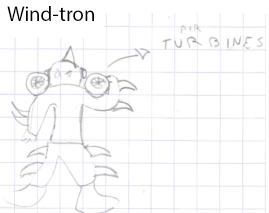 Wind-tron
AIR
TURBINES